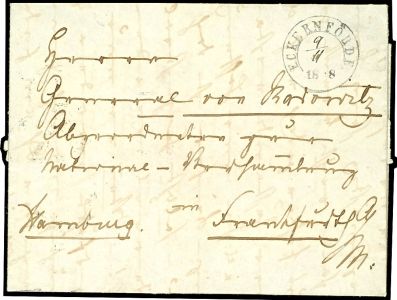 ECKERNFÖRDE
9/11
18 8
Herrn
General von Radowitz
Abgeordneter zur
National-Versammlung
in
Hamburg. Frankfurth a/
M.